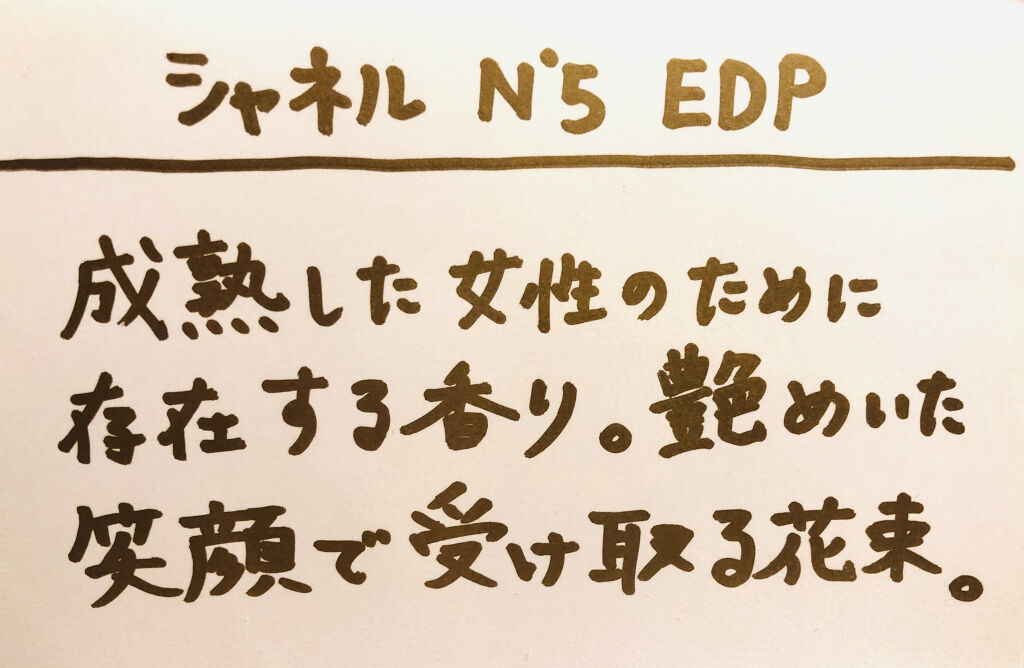 シャネル N°5 EDP
成熟した女性のために
存在する香り。艶めいた
笑顔で受け取る花束。